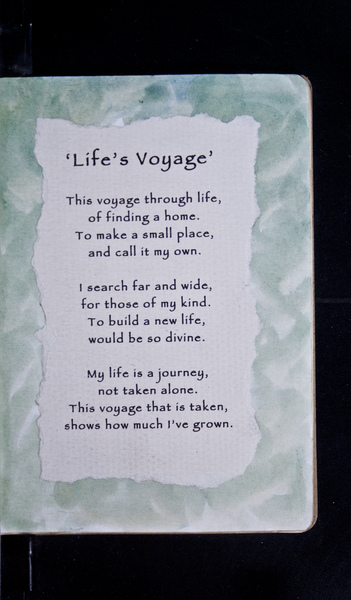 ‘Life’s Voyage’
This voyage through life,
of finding a home.
To make a small place,
and call it my own.
I search far and wide,
for those of my kind.
To build a new life,
would be so divine.
My life is a journey,
not taken alone.
This voyage that is taken,
shows how much I’ve grown.